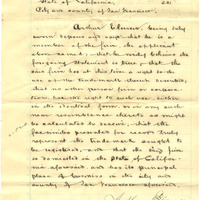 State of California, ss:
City and County of San Francisco
Arthur being duly
sworn deposes and says that he is a
member of the firm, the applicant
above named; that he verily believes the
foregoing statement is true; that the
said firm has at this time a right to the
use of the trademark therein described;
that no other person firm or corpora-
tion has the right to such use, either
in the identical form, or in any such
near resemblance thereto as might
be calculated to deceive; that the
facsimiles presented for record truly
represent the trademark sought to
be registered; and that the said firm
is domiciled in the State of Califor-
nia aforesaid and has its principal
place of business in the city and
county of San Francisco aforesaid.